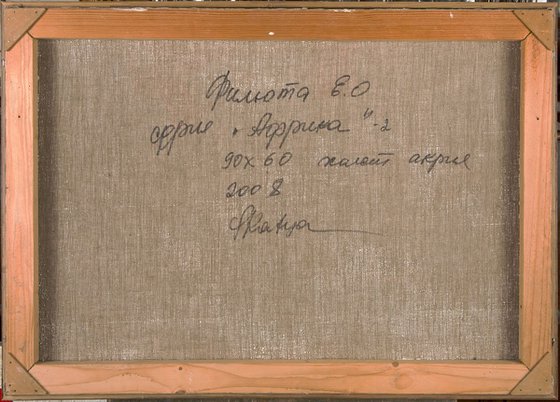 Филюта Е.О
серие „Африка"-2
90х60 холст акрил
2008